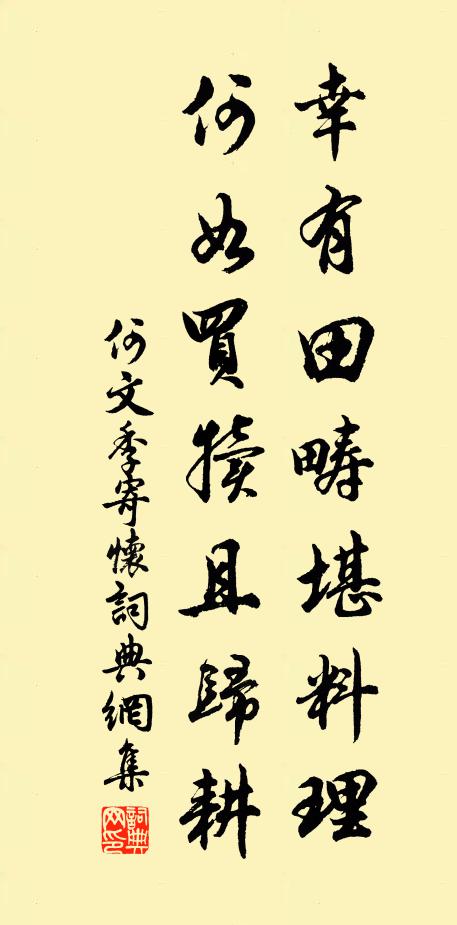 幸有田疇堪料理
何如買犢且歸耕
何文季寄懷詞典網集
詞典网印